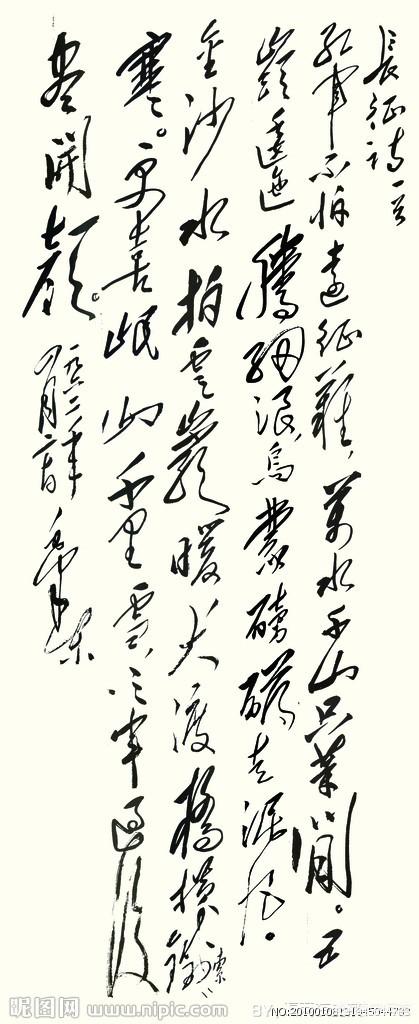 長征詩一首
紅軍不怕遠征難,萬水千山只等閒。五
嶺逶迤騰細浪,烏蒙磅礴走泥丸。
金沙水拍雲崖暖,大渡橋橫鐵索
寒。更喜岷山千里雪,三軍過後
盡開顏。
一九六二年
四月
毛澤東
昵图网 www.nipic.com
BY